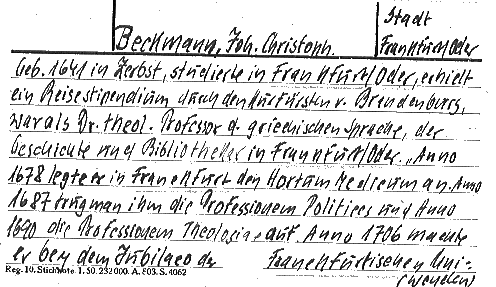 Stadt
Beckmann, Joh. Christoph.
Frankfurt/Oder
Geb. 1641 in Zerbst, studierte in Frankfurt/Oder, erhielt
ein Reisestipendium durch den Kurfürsten v. Brandenburg,
war als Dr. theol. Professor d. griechischen Sprache, der
Geschichte und Bibliothekar in Frankfurt/Oder. „Anno
1678 legte er in Franckfurt den Hortum Medicum an. Anno
1687 trug man ihm die Professionem Politices und Anno
1690 die Professionem Theologiae auf. Anno 1706 machte
er bey dem Jubilaeo der Franckfurtischen Uni-
Reg. 10. Stichnote 1. 50. 232 000. A. 803. S. 4062
(wenden)